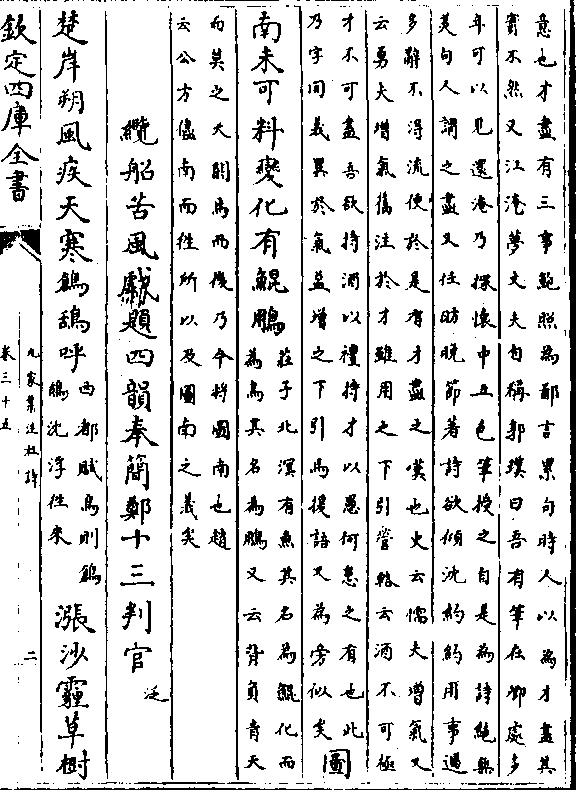 意也才盡有三事鮑照為鄙言累句時人以為才盡其
實不然又江淹夢丈夫自稱郭璞曰吾有筆在卿處多
年可以見還淹乃探懷中五色筆授之自是為詩絕無
美句人謂之盡又任昉晚節著詩欲傾沈約約用事過
多辭不得流便於是有才盡之嘆也史云懦夫增氣又
云勇夫增氣舊注於才雖用之下引管輅云酒不可極
才不可盡吾欲持酒以禮持才以愚何患之有也此
乃字同義異於氣益增之下引馬援語又為旁似矣 圖
南未可料變化有鯤鵬 莊子北溟有魚其名為鯤化而
為鳥其名為鵬又云背負青天
而莫之夭閼焉而後乃今將圖南也趙
云公方儘南而往所以及圖南之義矣
纜船苦風戲題四韻奉簡鄭十三判官 泛
楚岸朔風疾天寒鶬鴰呼 西都賦鳥則鶬
鴰沈浮往來 漲沙霾草樹
欽定四庫全書
九家集注杜詩
卷三十五
二